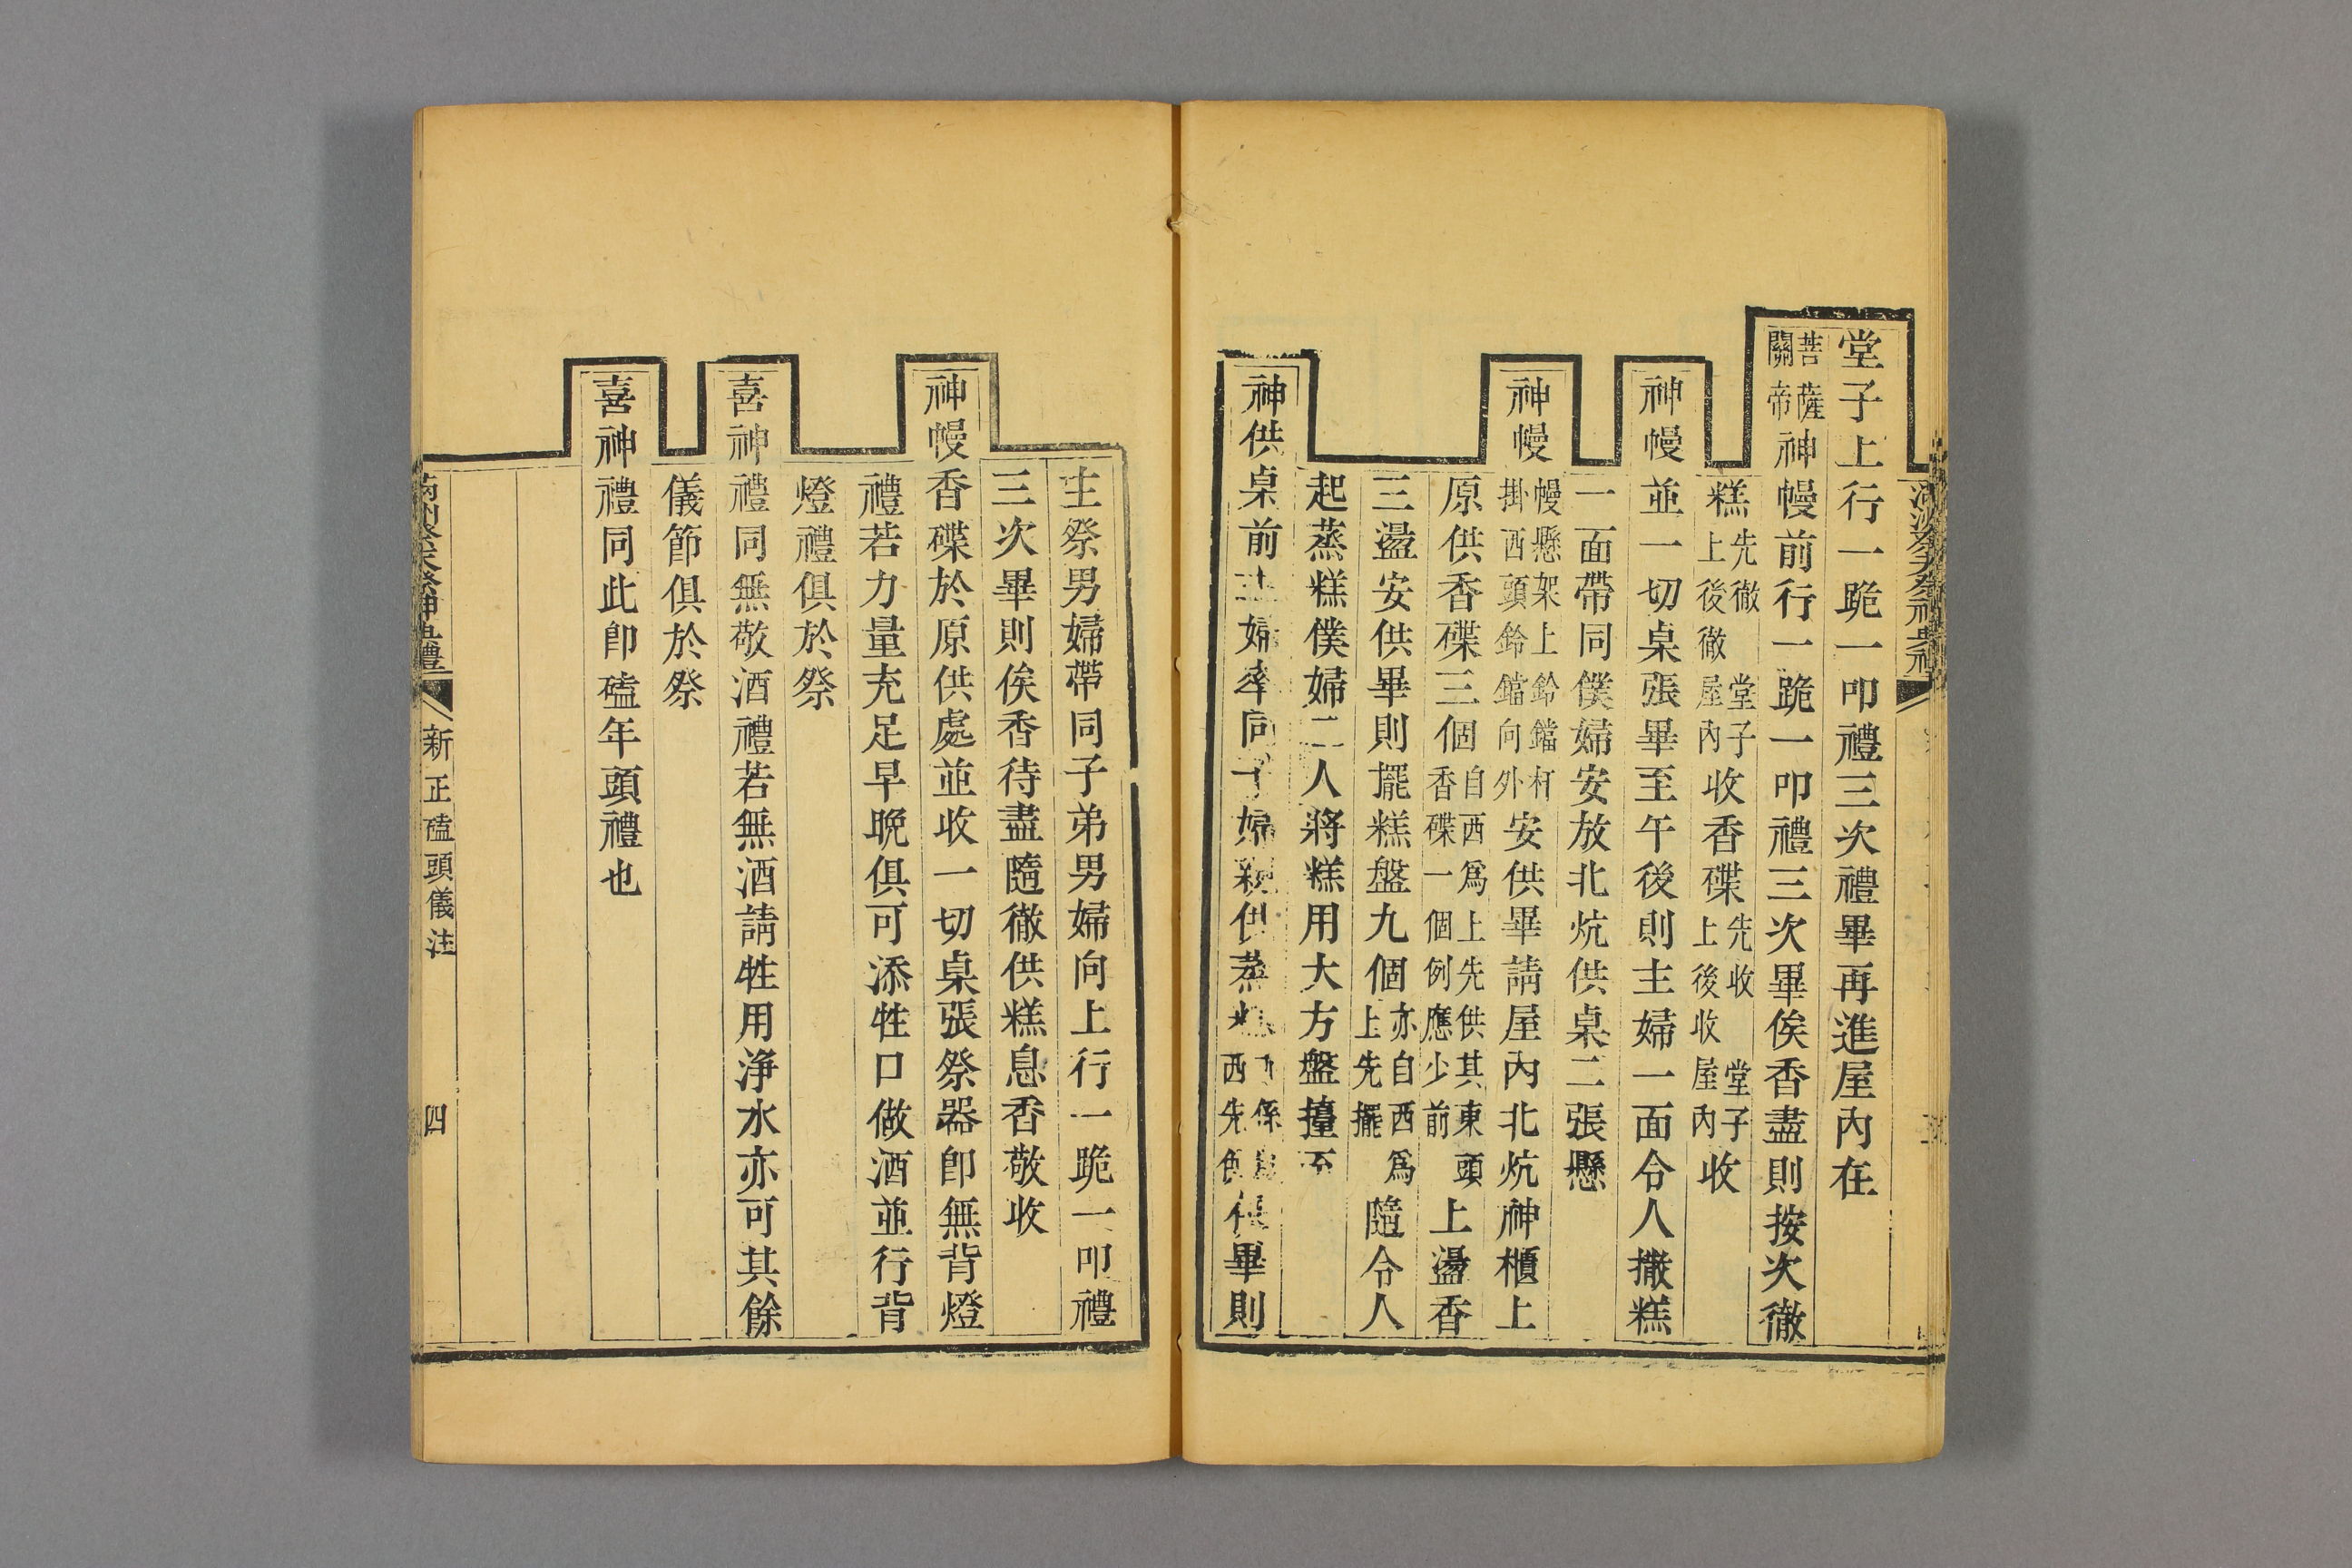 堂子上行一跪一叩禮三次禮畢再進屋內在
菩薩
關帝神幔前行一跪一叩禮三次畢俟香盡則按次徹
糕先徹堂子上後徹屋內收香碟先收堂子上後收屋內收
神幔並一切桌張畢至午後則主婦一面令人撤糕
一面帶同僕婦安放北炕供桌二張懸
神幔幔懸架上鈴鐺杆掛西頭鈴鐺向外安供畢請屋內北炕神櫃上
原供香碟三個自西爲上先供其東頭香碟一個例應少前上盪香
三盪安供畢則擺糕盤九個亦自西爲上先擺隨令人
起蒸糕僕婦二人將糕用大方盤擡至
神供桌前主婦率同子婦親供蒸西先供畢則
主祭男婦帶同子弟男婦向上行一跪一叩禮
三次畢則俟香待盡隨徹供糕息香敬收
神幔香碟於原供處並收一切桌張祭器卽無背燈
禮若力量充足早晩俱可添牲口做酒並行背
燈禮俱於祭
喜神禮同無敬酒禮若無酒請牲用淨水亦可其餘
儀節俱於祭
喜神禮同此卽磕年頭禮也
新正磕頭儀注
四